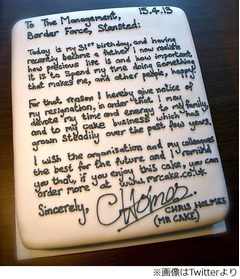 To The Management, 15.4.13
Border Force, Stansted:
Today is my 31st birthday, and having
recently become a father I now realise
how precious life is and how important
it is to spend my time doing something
that makes me, and other people, happy.
For that reason I hereby give notice of
my resignation, in order that I may
devote my time and energy to my family,
and to my cake business which has
grown steadily over the past few years.
I wish the organisation and my colleagues
the best for the future and I remind
you that, if you enjoy this cake, you can
order more at www.mrcake.co.uk.
Sincerely, CHolmes
CHRIS HOLMES
(MR CAKE)
※Twitterより